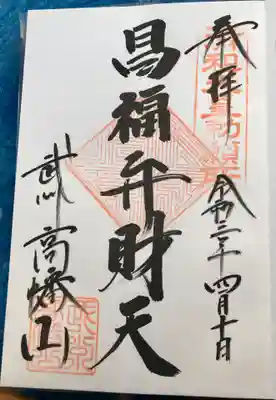 奉拝
令和二年四月十日
昌福弁財天
武州 高幡山